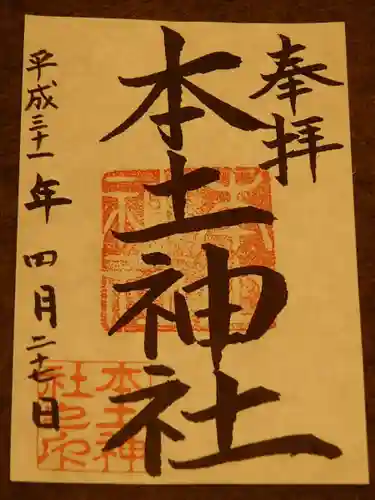 奉拝
本土神社
平成三十一年 四月 二十七日
本土神
社之印